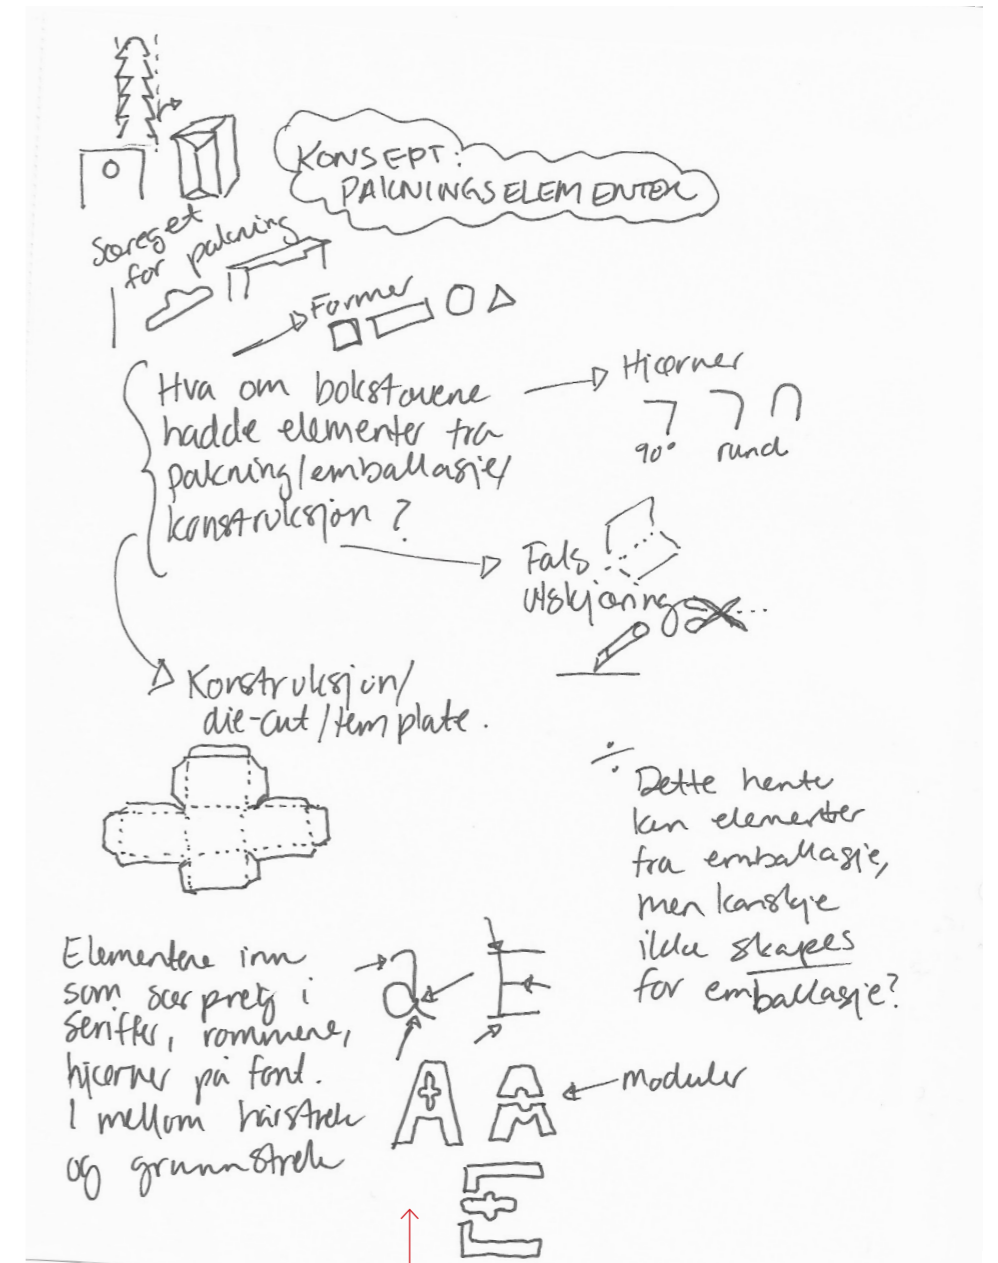 KONSEPT:
PAKNINGSELEMENTER
Særeget
for pakning
Former
Hva om bokstavene
hadde elementer fra
pakning/emballasje/
konstruksjon?
Hjørner
90° rund
Fals
utskjæring
Konstruksjon/
die-cut/template.
÷ Dette henter
kun elementer
fra emballasje,
men kanskje
ikke skapes
for emballasje?
Elementene inn
som særpreg i
seriffer, rommene,
hjørner på font.
I mellom hårstrek
og grunnstrek
Moduler